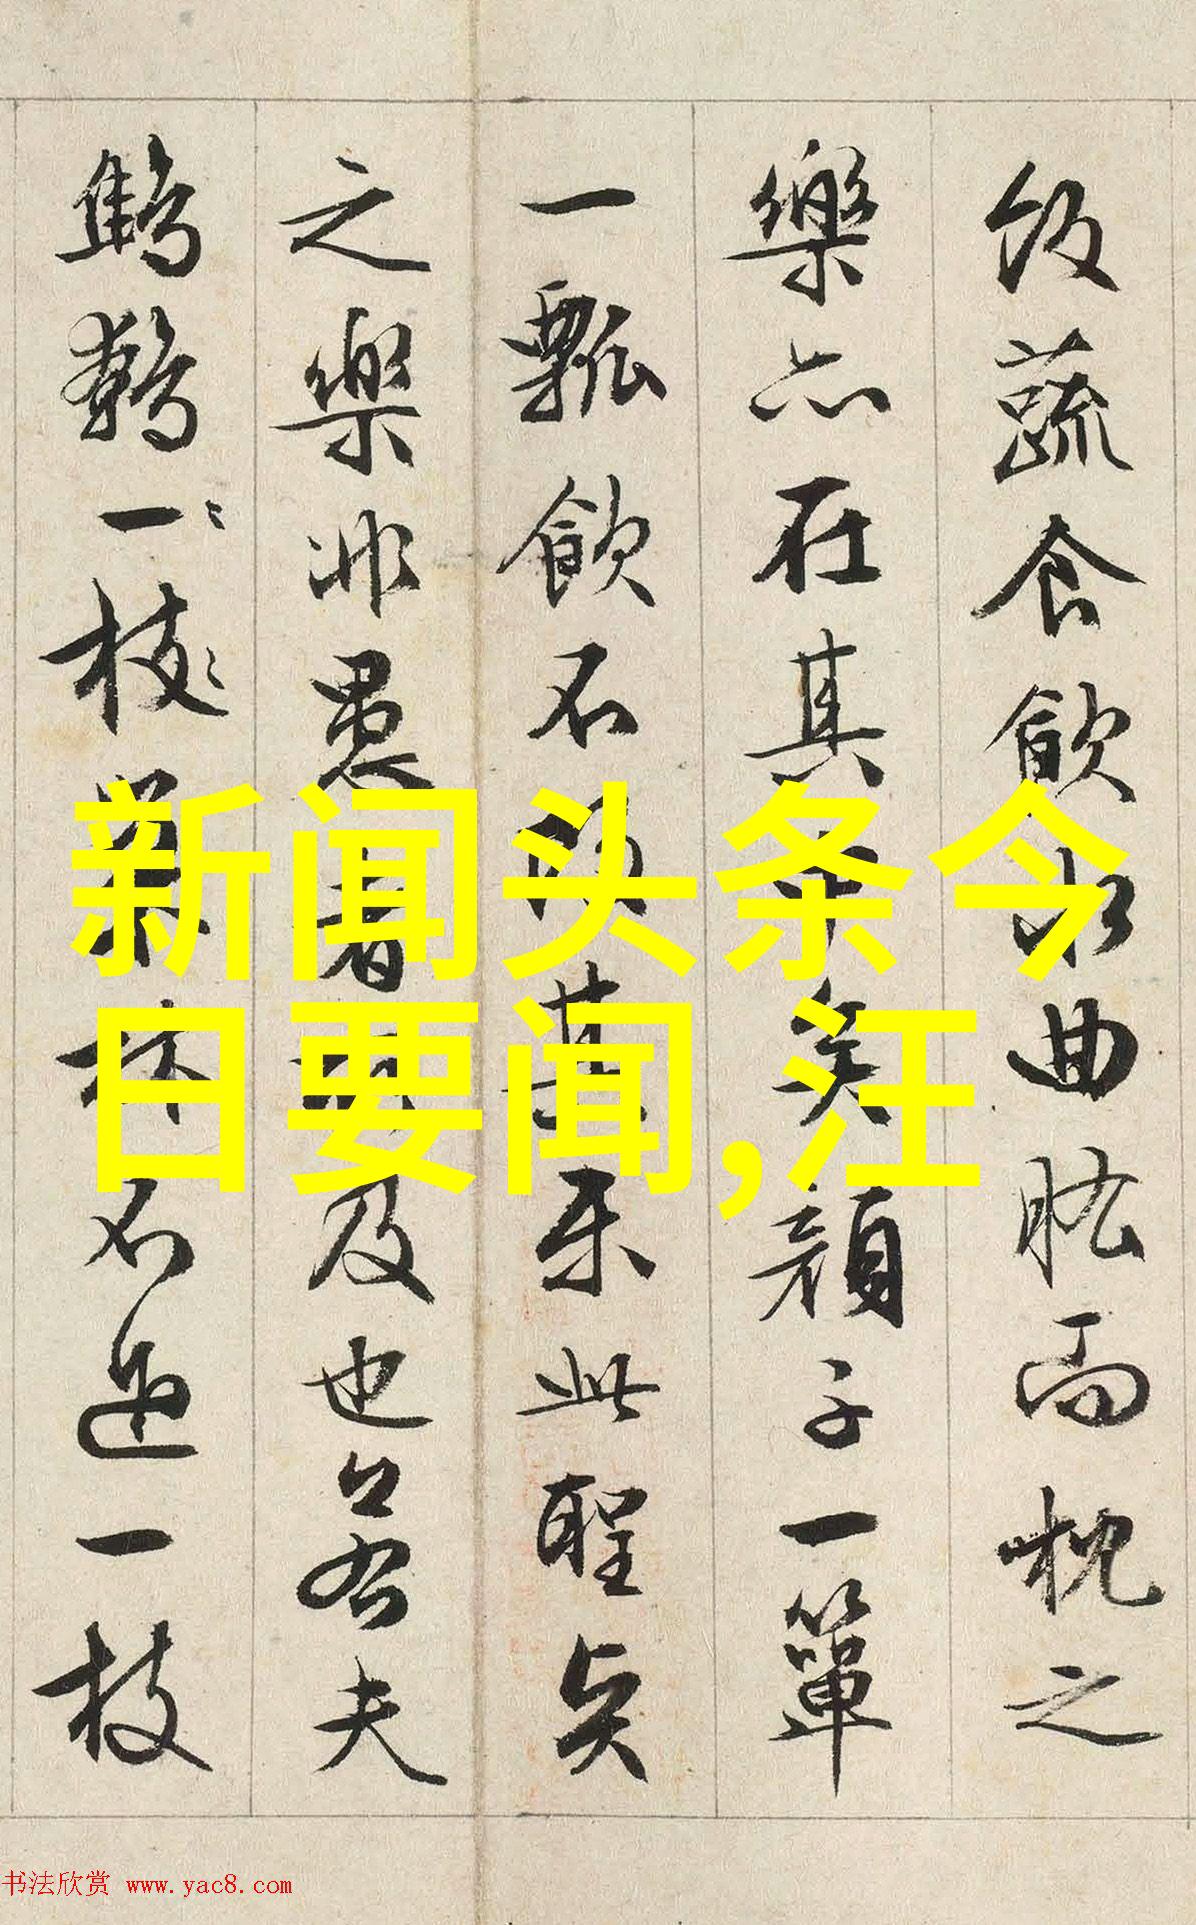 飯蔬食飲水曲肱而枕之
樂亦在其中矣顏子一簞
一瓢飲不改其樂此聖賢
之樂非愚者所及也若夫
鷦鷯一枝巢林不過一枝
新闻头条今
日要闻,汪
书法欣赏 www.yac8.com